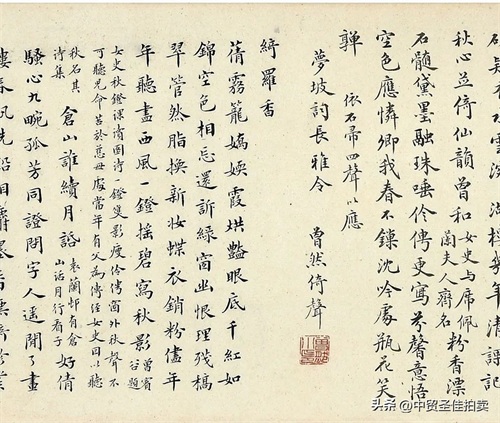 年清課記
秋心並倚仙韻曾和女史與席佩蘭夫人齊名粉香漂
石髓黛墨融珠唾伶俜更寫芬馨意悟
空色應憐卿我春不鏁沈吟處瓶花笑
亸 依石帚四聲以應
夢坡詞長雅令 曾然倚聲
綺羅香
蒨霧籠嬌霞烘豔眼底千紅如
錦空色相忘還訴綠窗幽恨理殘槁
翠管然脂換新妝蝶衣銷粉儘年
年聽盡西風一鐙搖碧寫秋影曾賓谷題
女史秋鐙課讀圖詩一鐙雙影瘦伶俜窗外秋聲不
可聽兒命苦於慈母處當年有父為傳經女史因以聽
秋名其詩集倉山誰續月話袁蘭邨有倉山話月行看子好倩
騷心九畹孤芳同證問字人遙閒了畫
頭条 @中贸圣佳拍卖